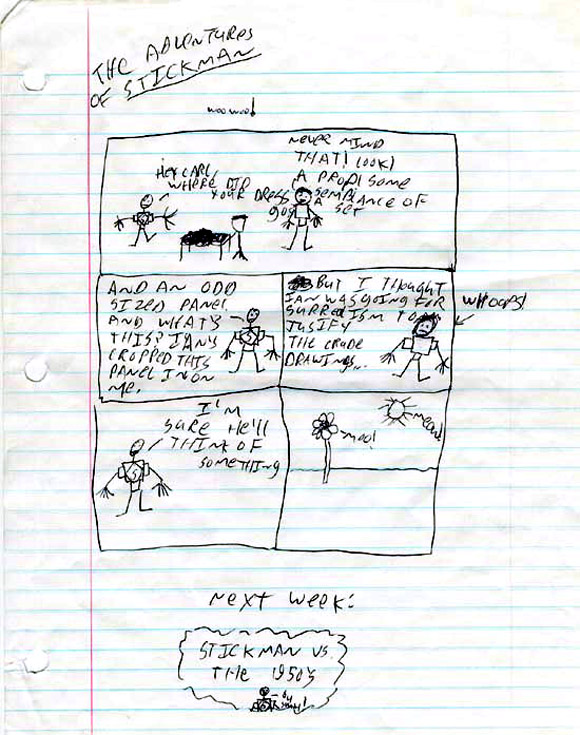 THE ADVENTURES
OF STICKMAN
woo woo!
HEY CARL,
WHERE DID
YOUR DRESS
go?
NEVER MIND
THAT! LOOK!
A PROP! SOME
SEMBLANCE OF
A SET
AND AN ODD
SIZED PANEL
AND WHAT'S
THIS? IAN'S
CROPPED THIS
PANEL IN ON
ME.
BUT I THOUGHT
IAN WAS GOING FOR
SURREALISM TO
JUSIFY
THE CRUDE
DRAWINGS...
WHOOPS!
I'M
SURE HE'LL
THINK OF
SOMETHING
moo!
meow!
NEXT WEEK:
STICKMAN VS.
THE 1950'S